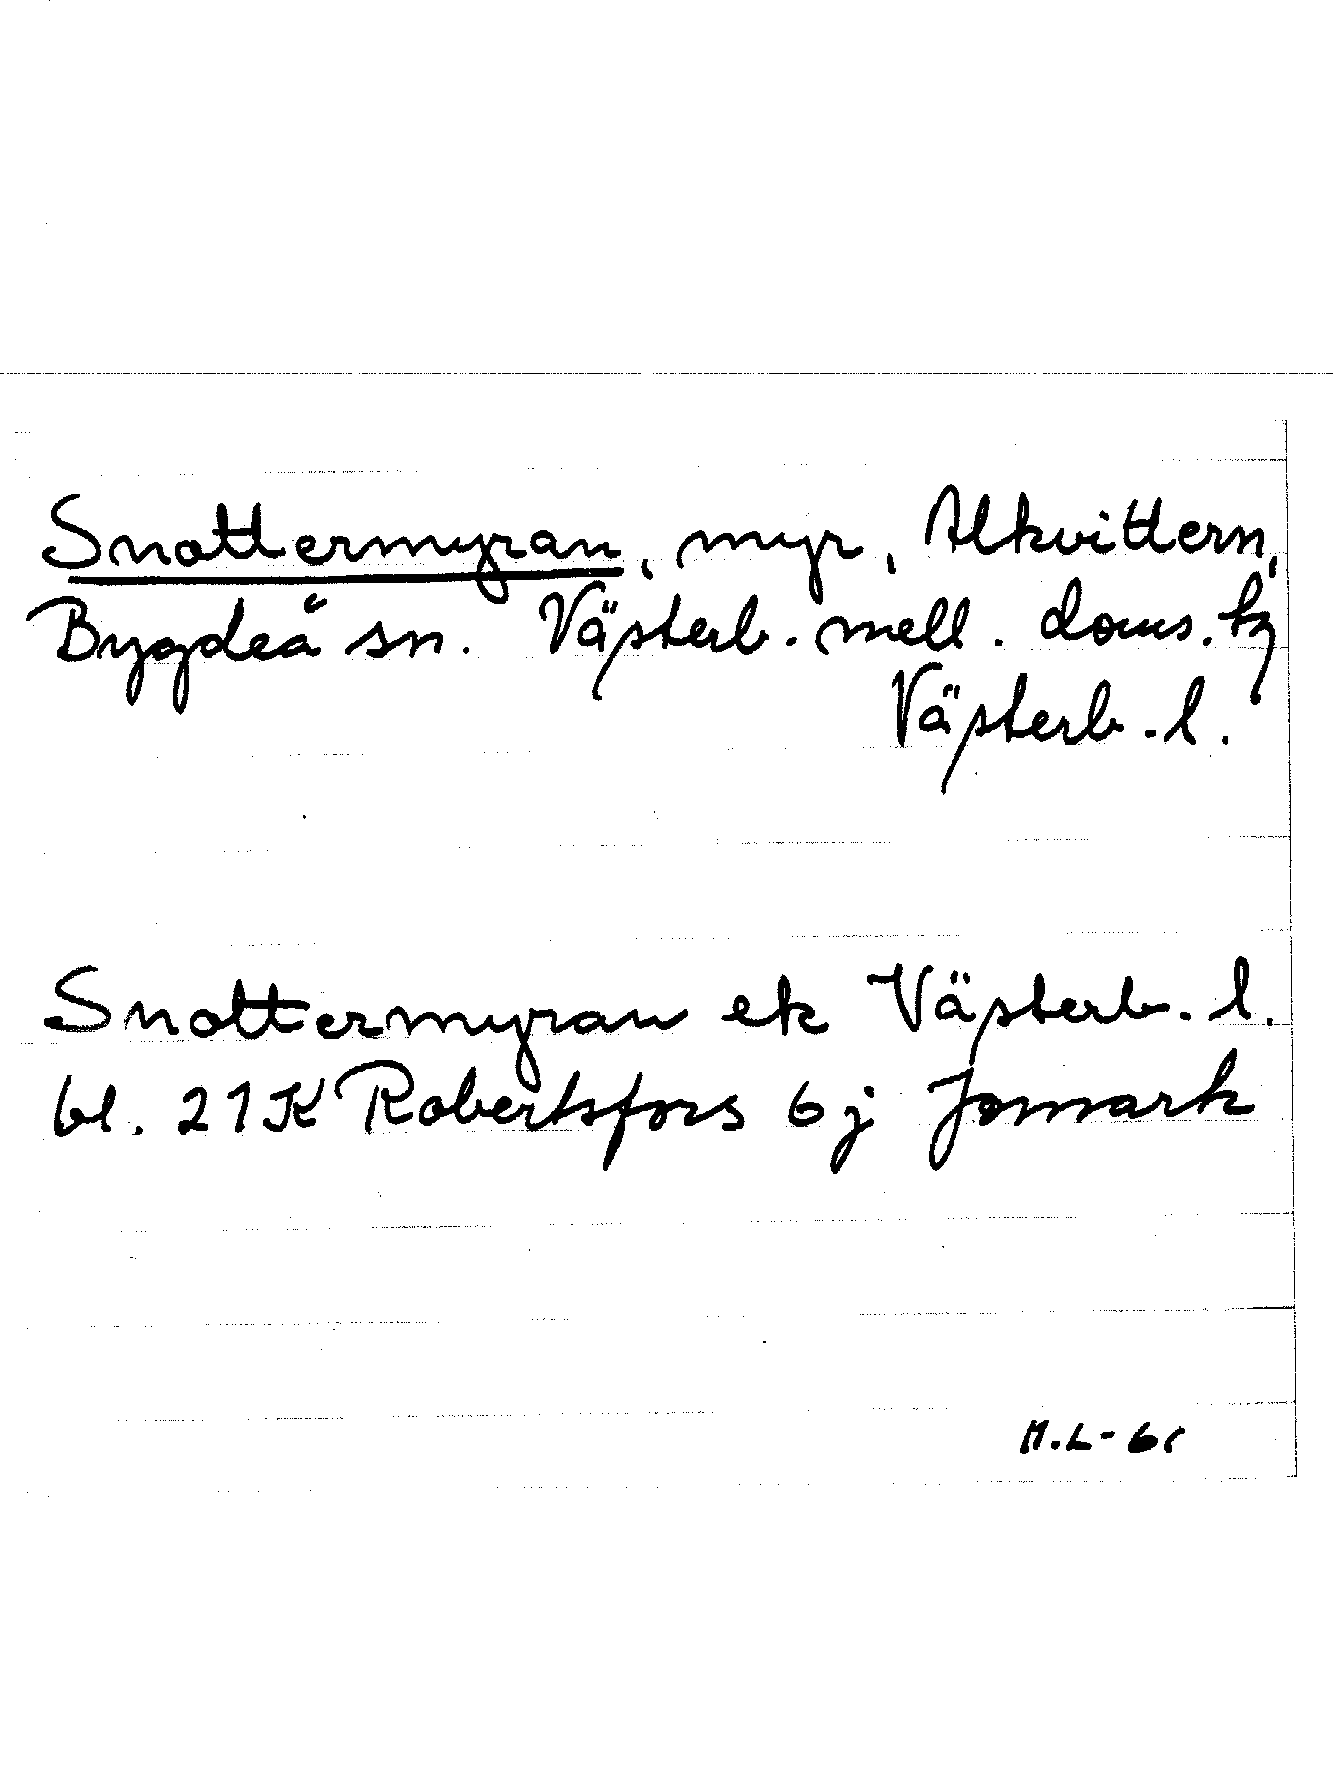 Snottermyran, myr, Alkvittern,
Bygdeå sn. Västerb. mell. doms. tg
Västerb. l.
Snottermyran ek Västerb. l.
bl. 21K Robertsfors 6j Jomark
M.L-61